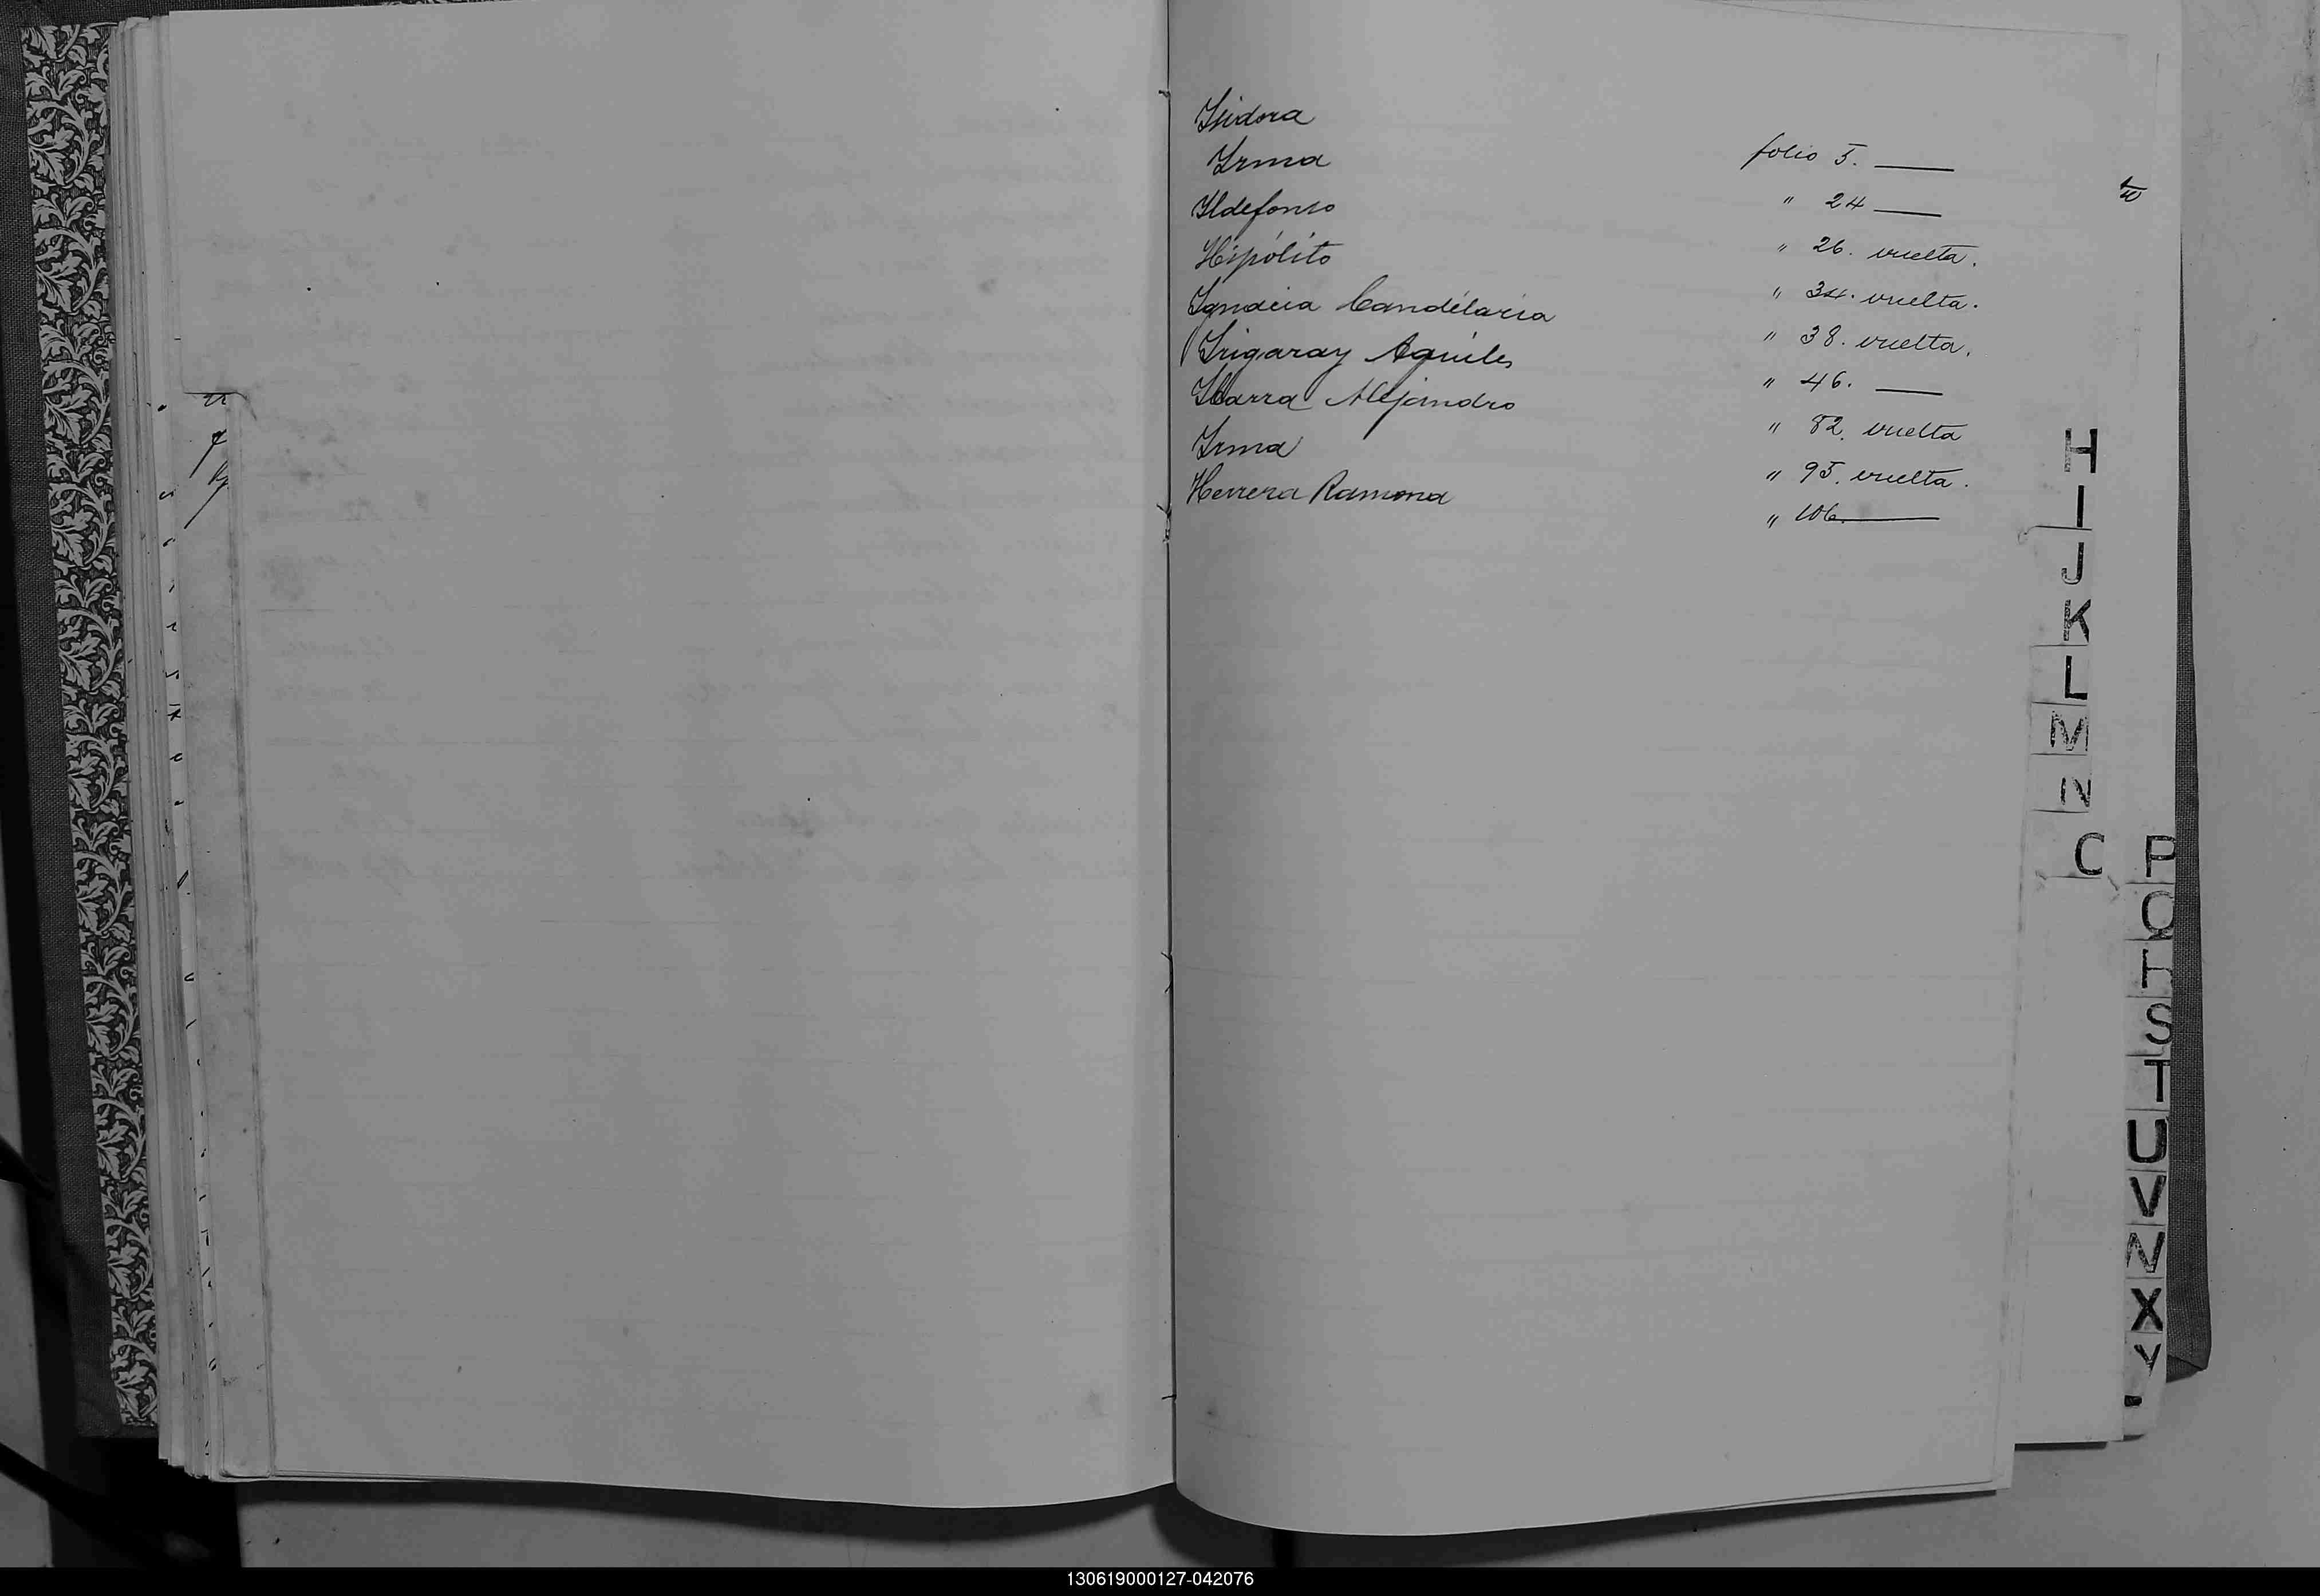 Isidora folio 5. ——
Irma " 24 ——
Ildefonso " 26. vuelta.
Hipólito " 34. vuelta.
Ignacia Candelaria " 38. vuelta.
Irigaray Aquiles " 46. ——
Ibarra Alejandro " 82. vuelta
Irma " 95. vuelta.
Herrera Ramona " 106. ——
H
I
J
K
L
M
N
P
S
T
U
V
X
Y
130619000127-042076